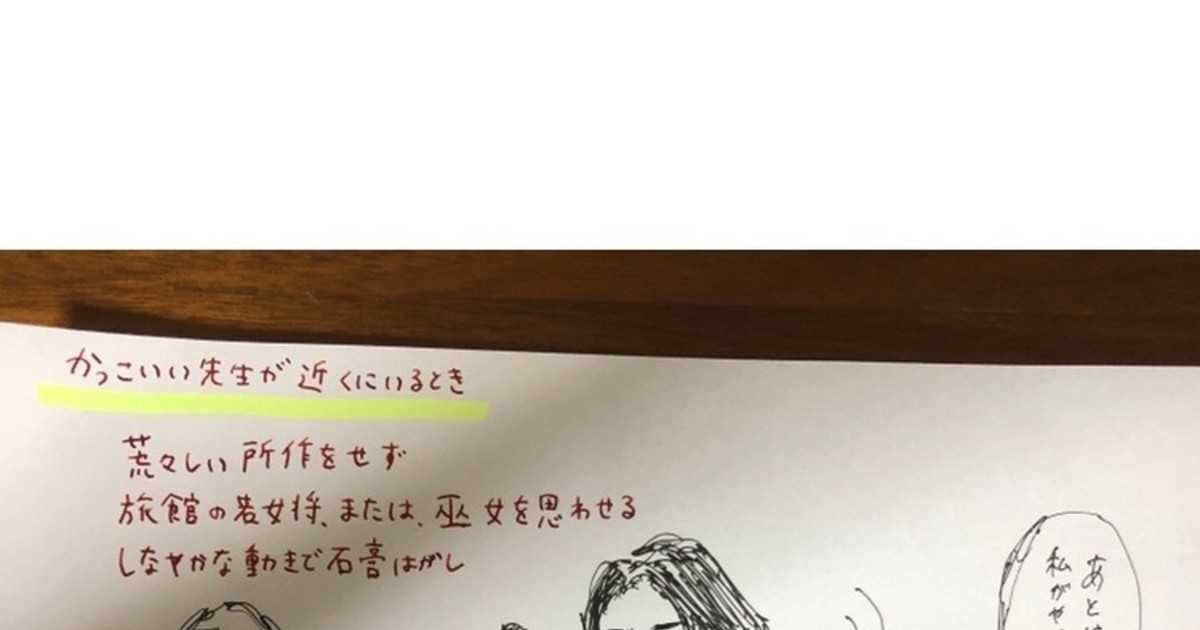 かっこいい先生が近くにいるとき
荒々しい所作をせず
旅館の若女将、または、巫女を思わせる
しなやかな動きで石膏はがし
あとは
私がや